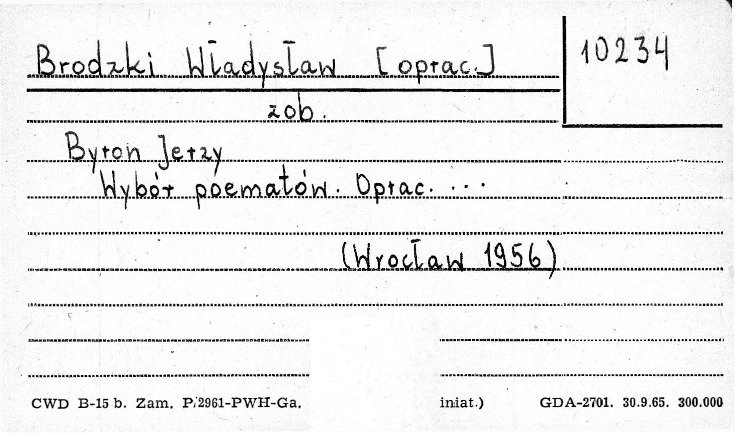 Brodzki Władysław [oprac.]
10234
zob.
Byron Jerzy
Wybór poematów. Oprac. ...
(Wrocław 1956)
CWD B-15 b. Zam. P/2961-PWH-Ga. iniat.) GDA-2701. 30.9.65. 300.000